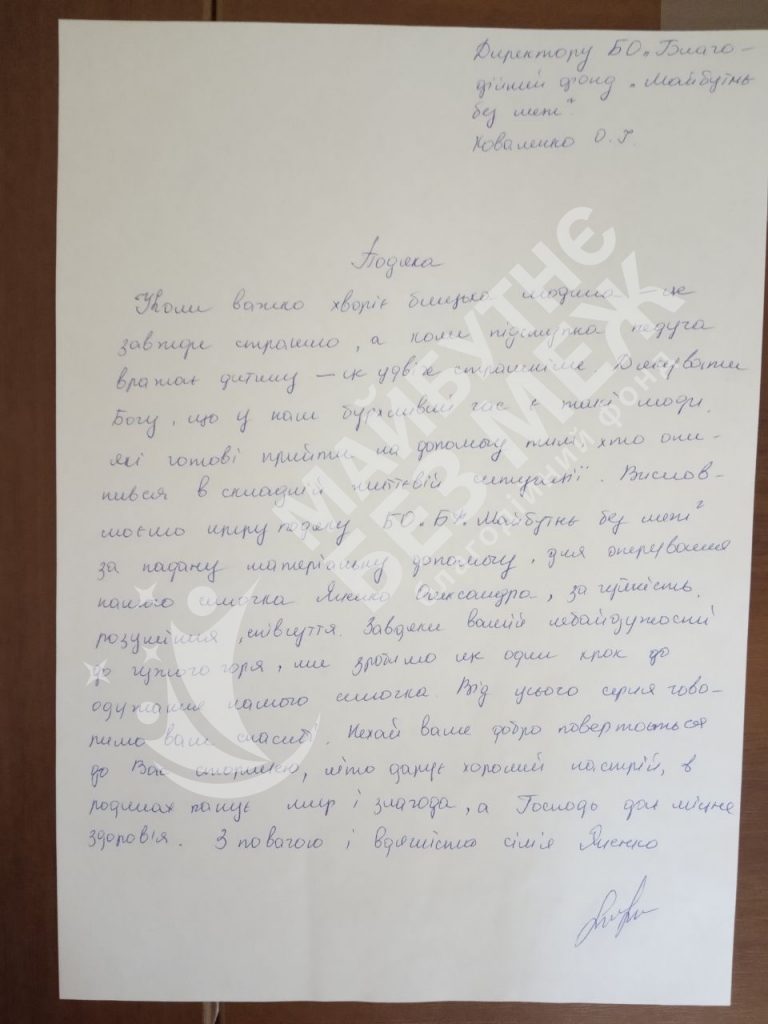 Директору БО „Благо-
дійний фонд „Майбутнє
без меж".
Коваленко О. Г.
Подяка
Коли важко хворіє близька людина – це
завжди страшно, а коли підступна недуга
вражає дитину – це удвічі страшніше. Дякувати
Богу, що у наш бурхливий час є такі люди,
які готові прийти на допомогу тим, хто опи-
нився в складній життєвій ситуації. Вислов-
люємо щиру подяку БО „БФ Майбутнє без меж"
за надану матеріальну допомогу, для оперування
нашого синочка Олександра, за чуйність,
розуміння, співчуття. Завдяки вашій небайдужості
до чужого горя, ми зробимо ще один крок до
одужання нашого синочка. Від усього серця гово-
римо вам спасибі. Нехай ваше добро повертається
до Вас сторицею, літо дарує хороший настрій, в
родинах панує мир і злагода, а Господь дає міцне
здоров'я. З повагою і вдячністю сім'я
МАЙБУТНЄ
БЕЗ МЕЖ
благодійний фонд